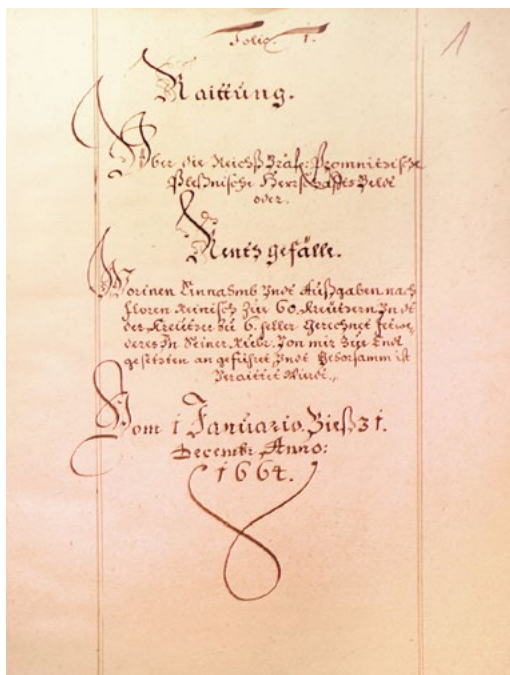 Folio. 1.
1
Raittung.
Über die Reichß Gräf: Promnitzische
Pleßnische Herrschaffts Geldt
oder.
Rentsgefälle.
Worinen Einnahmb Undt Außgaben nach
Floren Reinisch Zue 60. Kreützern Undt
der Kreützer Zu 6. heller Gerechnet
deres In Seiner Rubr: Von mir Zue Endt
gesetzten an geführet Undt Gehorsamm ist
Veraittet Wordt.,
Vom 1 Januario, Bieß 31.
Decembr: Anno:
1664.